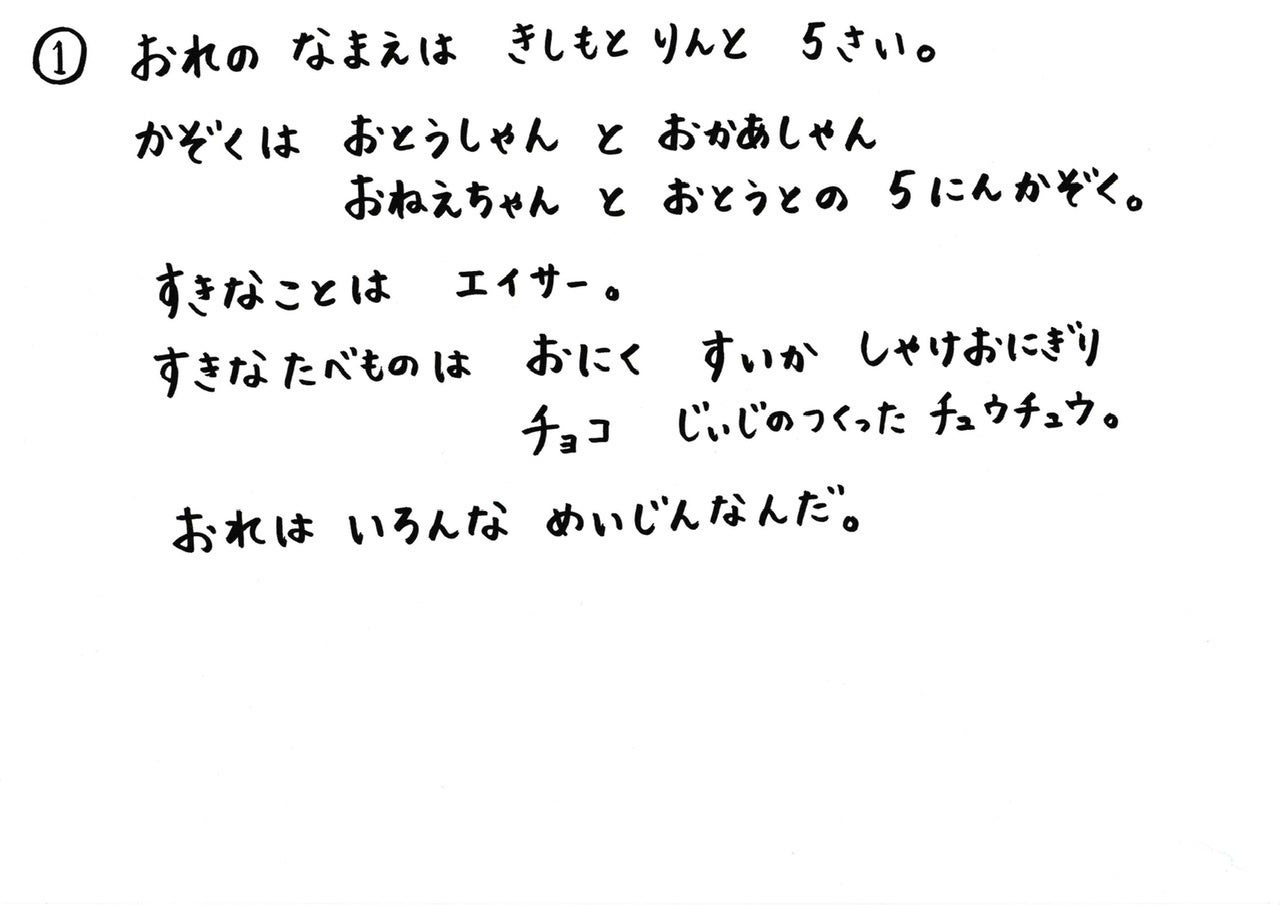 ① おれの なまえは きしもと りんと 5さい。
かぞくは おとうしゃん と おかあしゃん
おねえちゃん と おとうとの 5にんかぞく。
すきなことは エイサー。
すきなたべものは おにく すいか しゃけおにぎり
チョコ じぃじのつくった チュウチュウ。
おれは いろんな めいじんなんだ。